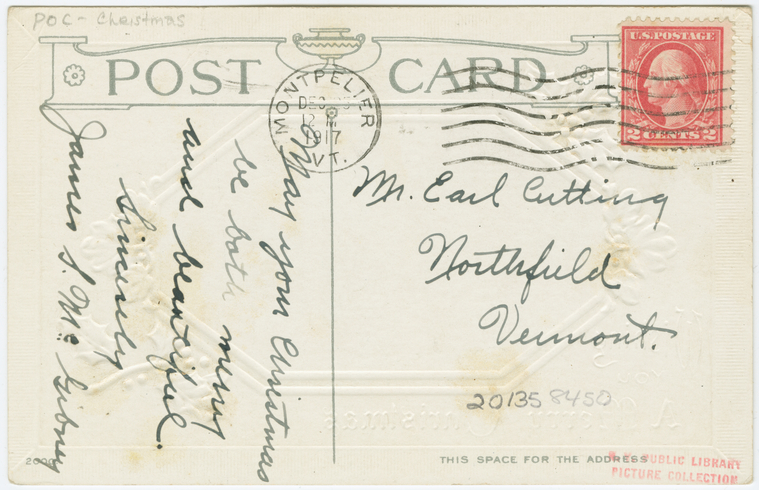 POC - Christmas
POST CARD
U.S. POSTAGE
2 CENTS 2
MONTPELIER
DEC
12 M
1917
VT.
May your Christmas
be both merry
and beautiful.
Sincerely
James S. McGibney
Mr. Earl Cutting
Northfield
Vermont.
A Merry Christmas
201358450
2000
THIS SPACE FOR THE ADDRESS
N.Y. PUBLIC LIBRARY
PICTURE COLLECTION